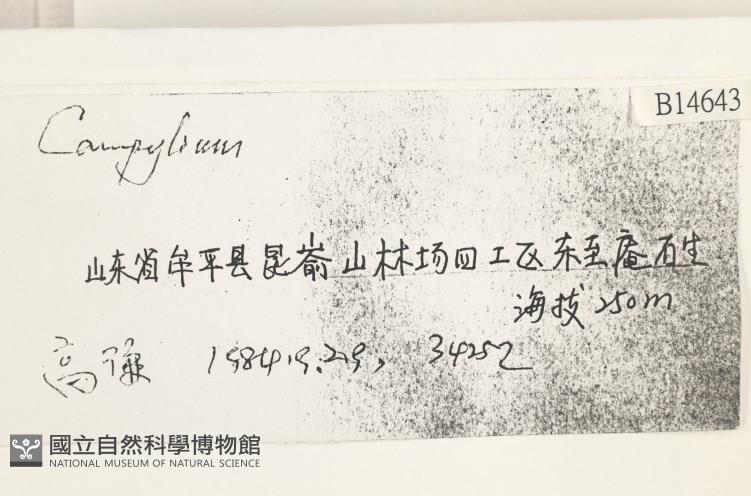 B14643
Campylium
山东省牟平县昆嵛山林场四工区东至庵石生
海拔250m
高谦 1984.9.29, 34252
國立自然科學博物館
NATIONAL MUSEUM OF NATURAL SCIENCE